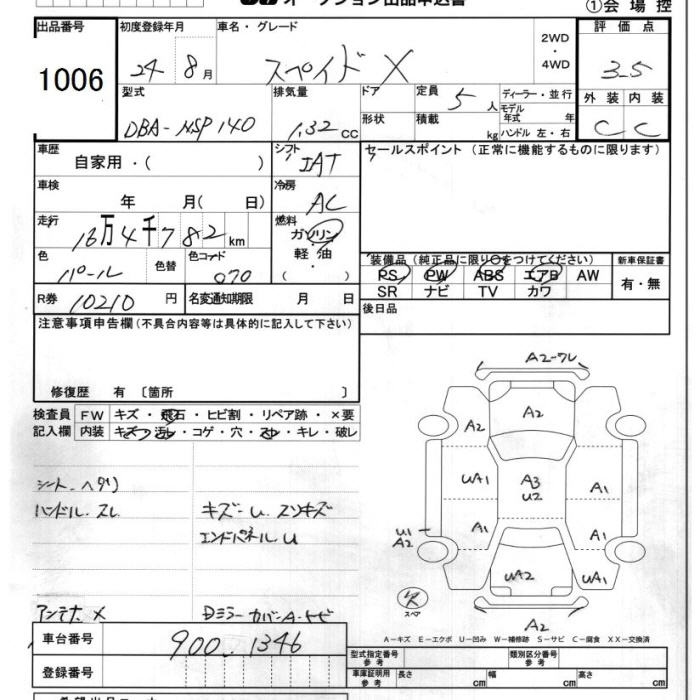 オークション出品申込書
①会場控
出品番号
1006
初度登録年月
24年 8月
車名・グレード
スペイド X
2WD
・
4WD
評価点
3.5
外装 内装
C C
型式
DBA-NSP140
排気量
1.32 CC
ドア
形状
定員 5人
積載 kg
ディーラー・並行
モデル年式 年
ハンドル 左・右
車歴
自家用・( )
シフト
IAT
セールスポイント (正常に機能するものに限ります)
車検
年 月( 日)
冷房
AC
走行
16万4千782km
燃料
ガソリン
軽油・
( )
色
パール
色替
色コード
070
装備品 (純正品に限り○をつけてください)
PS PW ABS エアB AW
SR ナビ TV カワ
新車保証書
有・無
R券 10210円
名変通知期限 月 日
後日品
注意事項申告欄(不具合内容等は具体的に記入して下さい)
修復歴 有 〔箇所 〕
検査員記入欄
FW キズ・飛石・ヒビ割・リペア跡・×要
内装 キズ・汚れ・コゲ・穴・スレ・キレ・破レ
シート ヘタリ
ハンドル スレ
キズー U スリキズ
エンドパネル U
アンテナ X
Dミラーカバー A・トビ
A2-ワレ
A2
A2
UA1
A3
U2
A1
U1
A2
A1
A1
UA2
UA1
スペア
A2
A-キズ E-エクボ U-凹み W-補修跡 S-サビ C-腐食 XX-交換済
車台番号
900..1346
登録番号
型式指定番号
参考
類別区分番号
参考
車庫証明用
参考
長さ cm
幅 cm
高さ cm